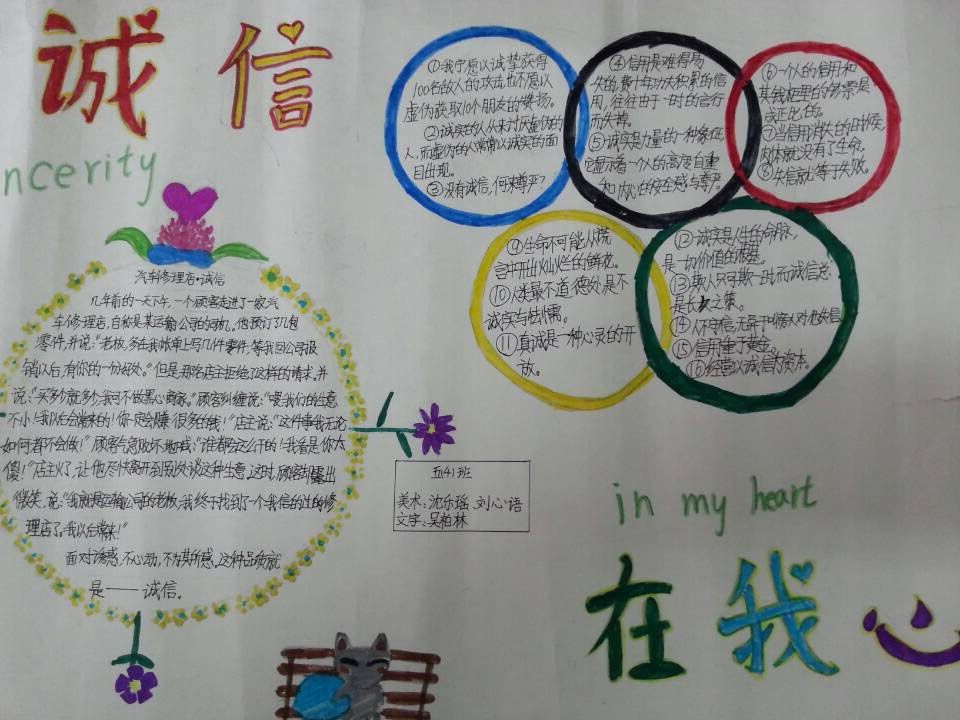 诚信
ncerity
汽车修理店·诚信
几年前的一天下午,一个顾客走进了一家汽
车修理店,自称是某运输公司的司机。他预订了几包
零件,并说:“老板,多在我账单上写几件零件,等我回公司报
销以后,有你的一份好处。”但是,那路店主拒绝了这样的请求,并
说:“买多少就多少,我可不做黑心商家。”顾客纠缠说:“嘿,我们的生意
不小!我以后会常来的!你一定会赚很多的钱!”店主说:“这件事我无论
如何都不会做!”顾客气急败坏地喊:“谁都会这么干的!我看是你太
傻!”店主火了,让他尽快离开到别处谈这种生意。这时,顾客却露出
微笑,说:“我就是运输公司的老板,我终于找到了一个我信的过的修
理店了。我以后常来!”
面对诱惑,不心动,不为其所惑。这种品质就
是——诚信。
①我宁愿以诚挚获得
100名敌人的攻击,也不愿以
虚伪获取10个朋友的赞扬。
②诚实的人从来讨厌虚伪的
人,而虚伪的人常常以诚实的面
目出现。
③没有诚信,何来尊严?
④信用是难得易
失的,费十年功夫积累的信
用,往往由于一时的言行
而失掉。
⑤诚实是力量的一种象征,
它显示着一个人的高度自重
和内心的安全感与尊严。
⑥一个人的信用和
其钱柜里的钞票是
成正比的。
⑦当信用消失的时候,
肉体就没有了生命。
⑧失信就等于失败。
⑨生命不可能从谎
言中开出灿烂的鲜花。
⑩人类最不道德处是不
诚实与怯懦。
⑪真诚是一种心灵的开
放。
⑫诚实是人生的命脉,
是一切价值的根基。
⑬欺人只可欺一时,而诚信总
是长久之策。
⑭人不守信,无异于
⑮信用重于黄金。
⑯经营以诚信为资本。
五41班
美术:沈乐瑶、刘心语
文字:吴柏林
in my heart
在我心